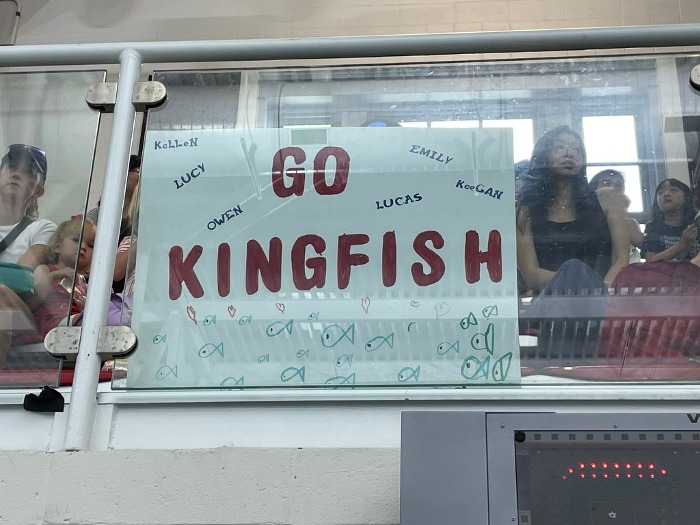 KeLLeN
LUCY
OWEN
GO
EMILY
LUCAS
KeeGAN
KINGFISH